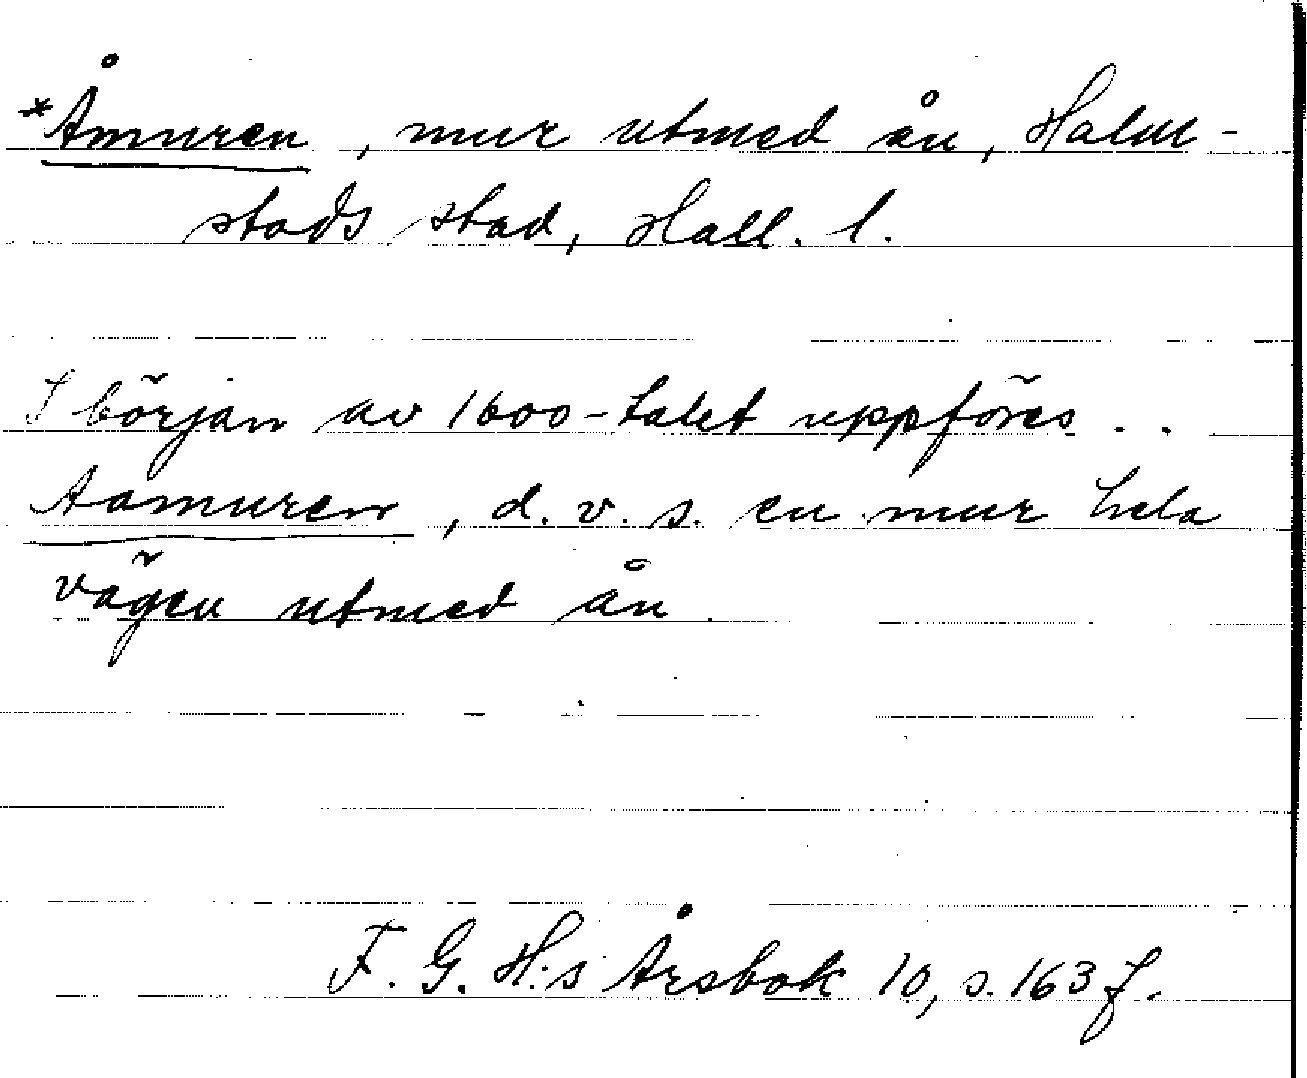 *Åmuren, mur utmed ån, Halm-
stads stad, Hall. l.
I början av 1600-talet uppföres . .
Aamuren, d. v. s. en mur hela
vägen utmed ån.
F. G. H:s Årsbok 10, s. 163 f.